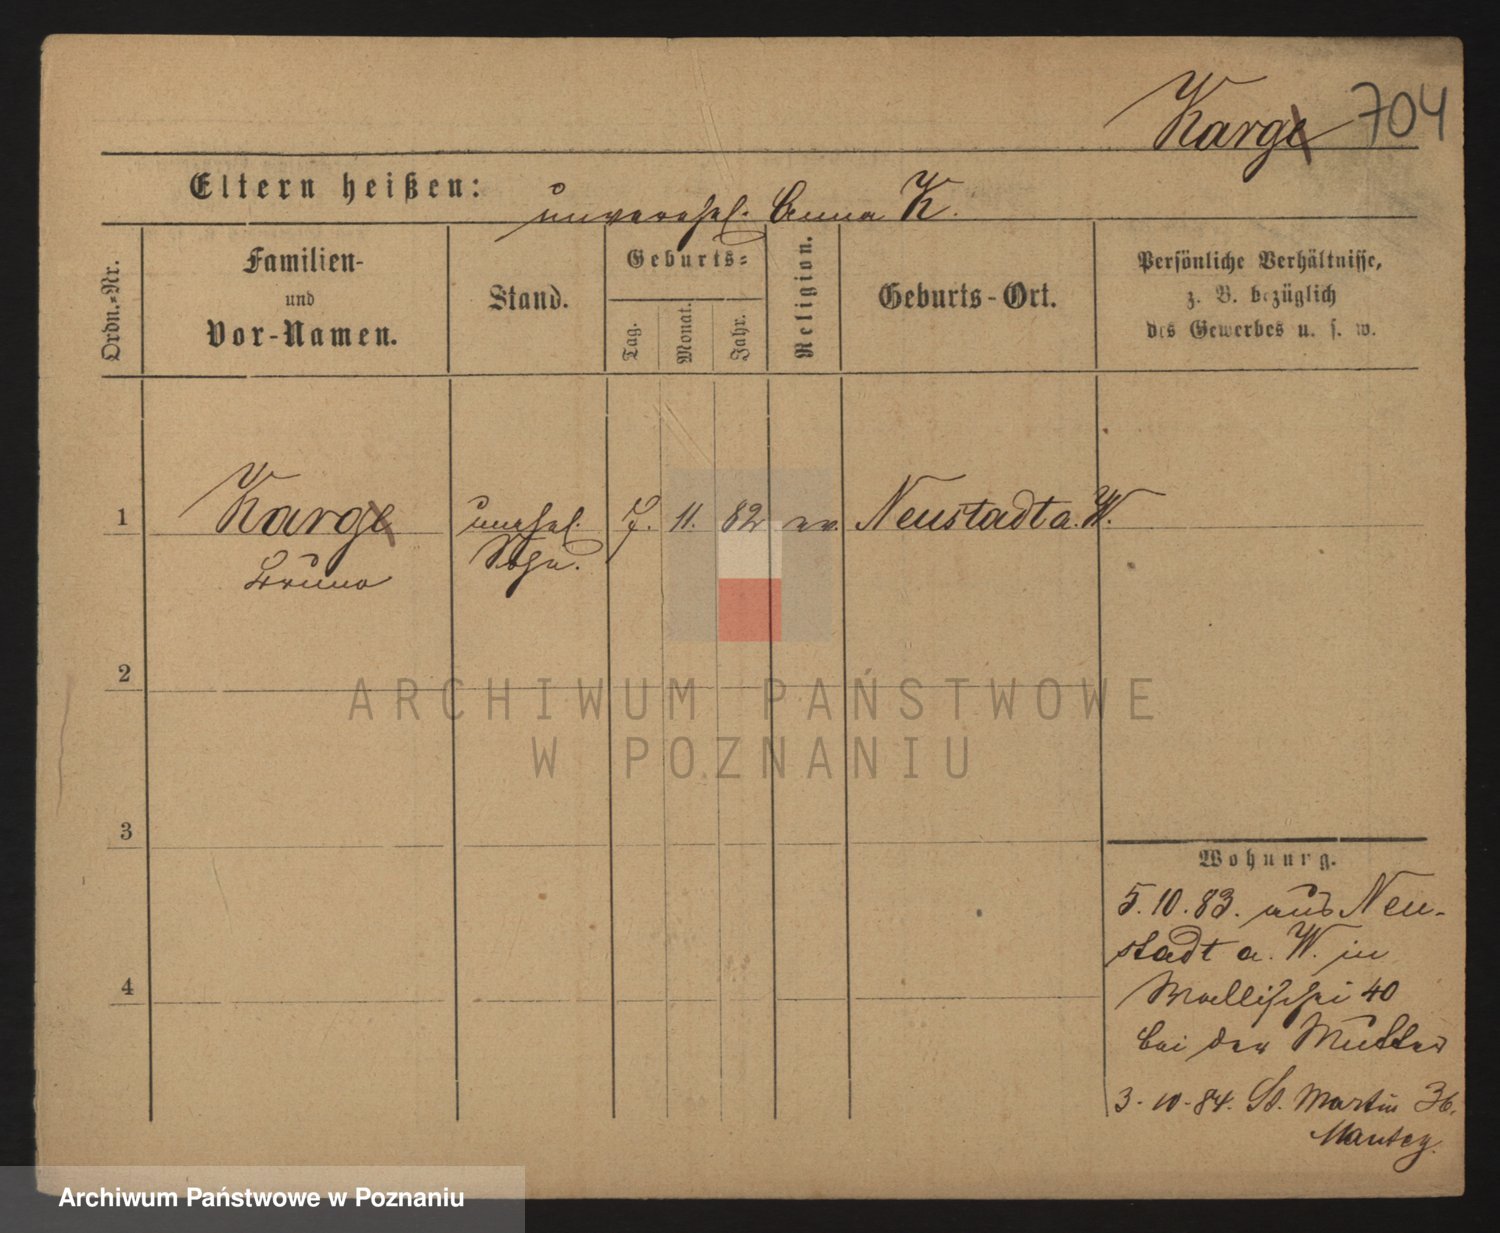 Karge 704
Eltern heißen: unverehel. Anna K.
Ordn.-Nr.
Familien-
und
Vor-Namen.
Stand.
Geburts-
Tag.
Monat.
Jahr.
Religion.
Geburts-Ort.
Persönliche Verhältnisse,
z. B. bezüglich
des Gewerbes u. s. w.
1 Karge unehel. 7. 11. 82 ev. Neustadt a. W.
Bruno Sohn.
2
3
4
Wohnung.
5.10.83. aus Neu-
stadt a. W. in
Wallischei 40
bei der Mutter
3.10.84. St. Martin 36.
Mantey.
ARCHIWUM PAŃSTWOWE
W POZNANIU
Archiwum Państwowe w Poznaniu